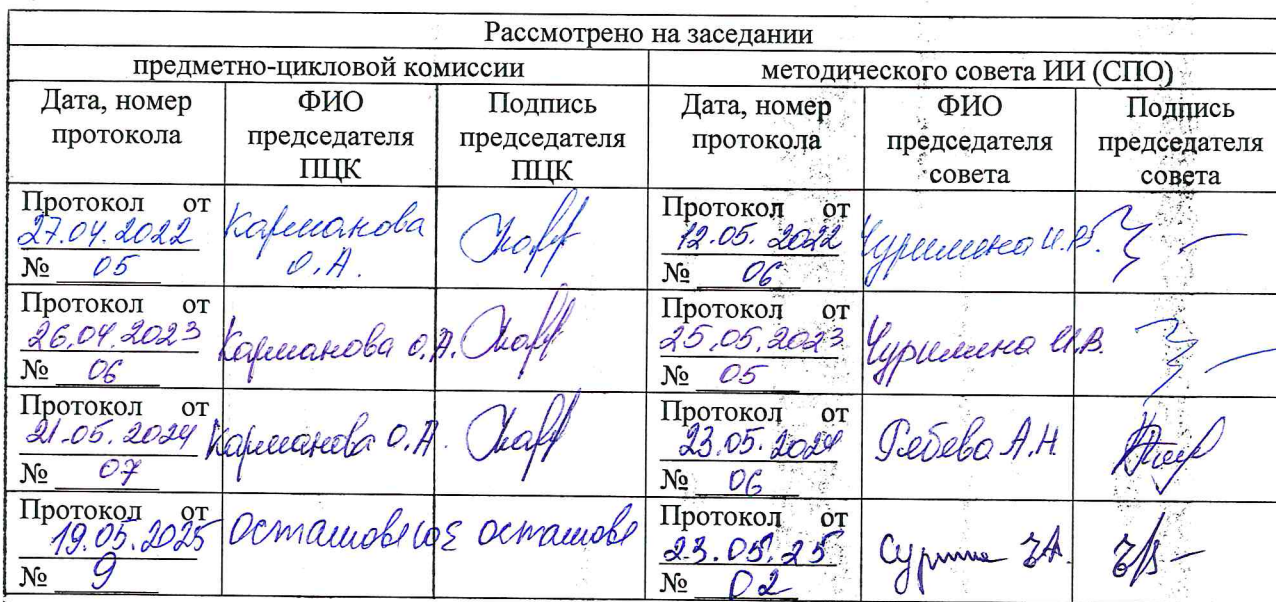 Рассмотрено на заседании
предметно-цикловой комиссии
методического совета ИИ (СПО)
Дата, номер протокола
ФИО председателя ПЦК
Подпись председателя ПЦК
Дата, номер протокола
ФИО председателя совета
Подпись председателя совета
Протокол от
27.04.2022
№ 05
Карманова
О.А.
Протокол от
12.05.2022
№ 06
Чурилина И.В.
Протокол от
26.04.2023
№ 06
Карманова О.А.
Протокол от
25.05.2023
№ 05
Чурилина И.В.
Протокол от
21.05.2024
№ 07
Карманова О.А.
Протокол от
23.05.2024
№ 06
А.Н.
Протокол от
19.05.2025
№ 9
Протокол от
23.05.25
№ 02